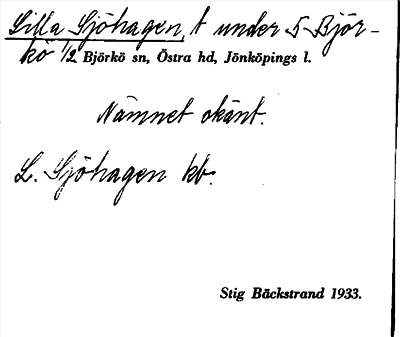 Lilla Sjöhagen, t under 5 Björ-
kö 1/2 Björkö sn, Östra hd, Jönköpings l.
Nämnet okänt.
L. Sjöhagen kb.
Stig Bäckstrand 1933.